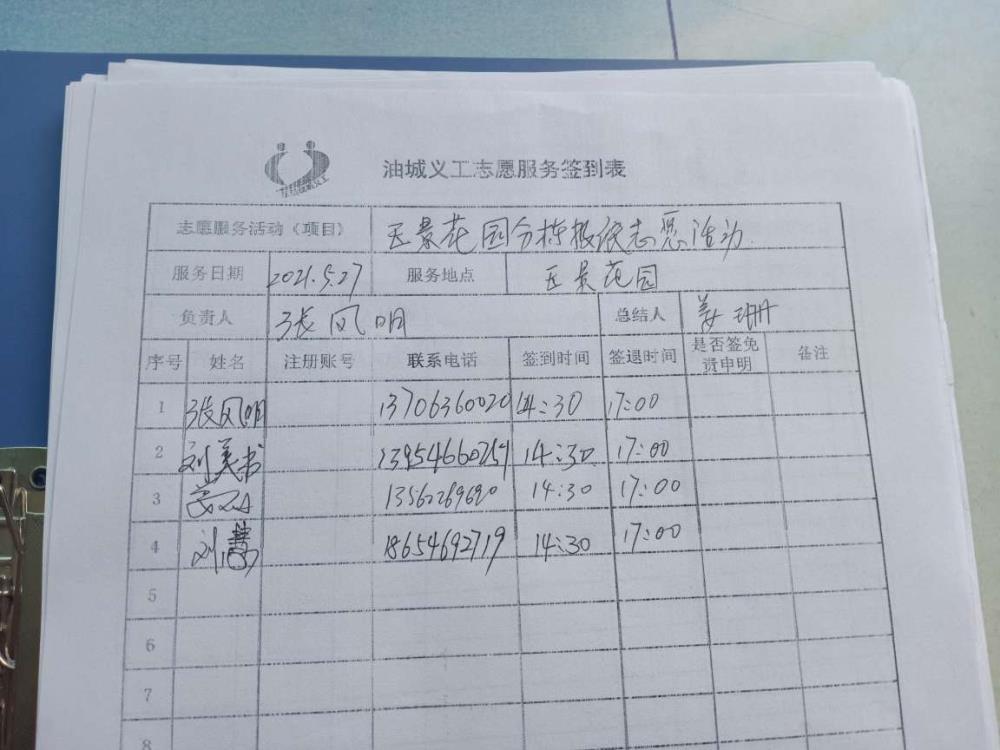 油城义工志愿服务签到表
志愿服务活动（项目） 五景花园分拣报纸志愿活动
服务日期 2021.5.27 服务地点 五景花园
负责人 张凤明 总结人 姜珊
序号 姓名 注册账号 联系电话 签到时间 签退时间 是否签免责申明 备注
1 张凤明 13706360020 14:30 17:00
2 刘美书 13954660259 14:30 17:00
3 13560269690 14:30 17:00
4 刘慧 18654692719 14:30 17:00
5
6
7
8